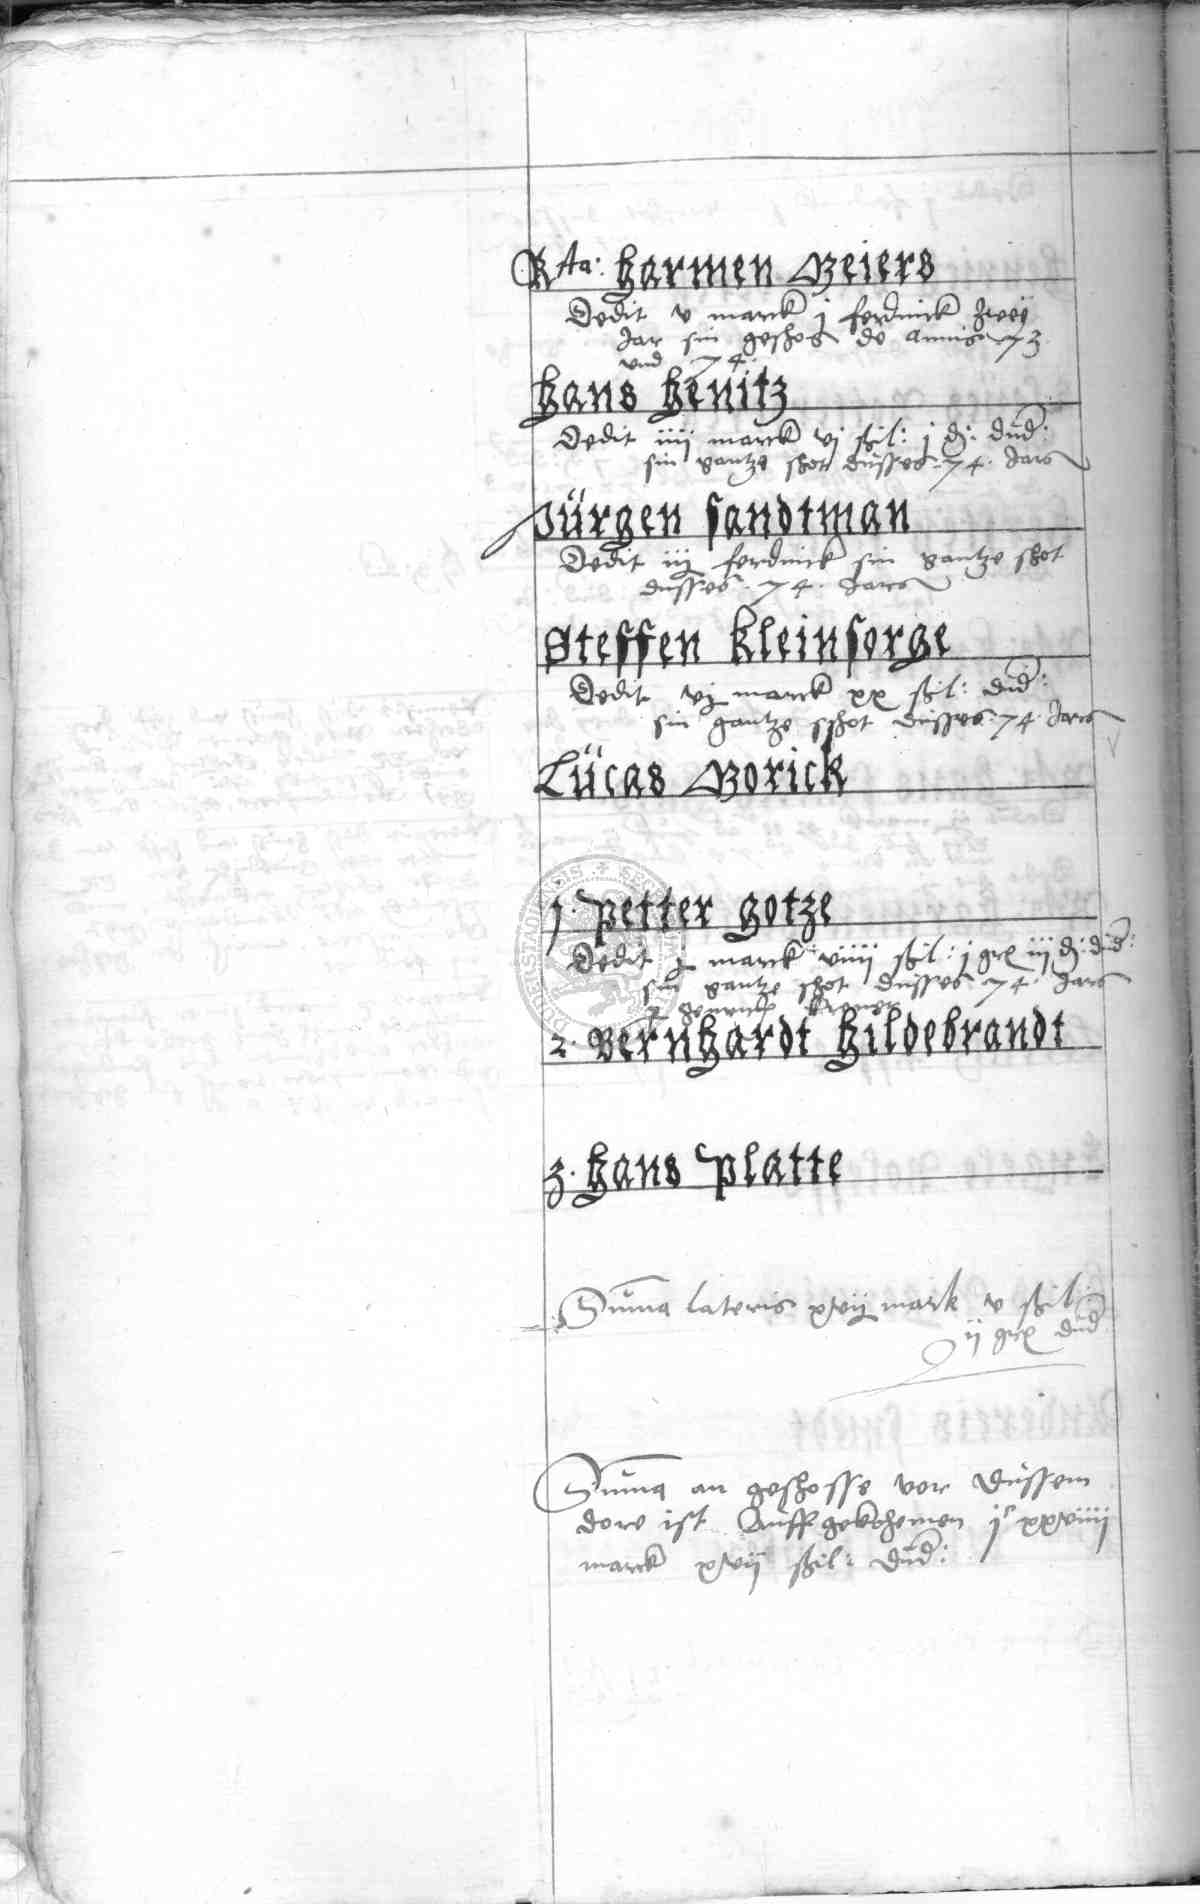 Rta: Harmen Beiers
Dedit v marck j ferdinck zweÿ
Jar sin geschos de Annis 73
vnd 74
Hans Henitz
Dedit iiij marck vj ßil: j d: dud:
sin gantze schot dusses 74 Jars
Jürgen Sandtman
Dedit iij ferdinck sin gantze schot
dusses 74 Jars
Steffen Kleinsorge
Dedit vj marck xx ßil: dud:
sin gantze schot dusses 74 Jars
Lücas Borick
1. Petter Gotze
Dedit j marck viiij ßil: j gr iij d: dud:
sin gantze schot dusses 74 Jars
2. Bernhardt Hildebrandt
3. Hans Platte
Suma lateris xvij mark v ßil
ij gr dud
Suma an geschosse vor dussem
dore ist Auff gekohemen jc xxviiij
marck xvij ßil: dud: